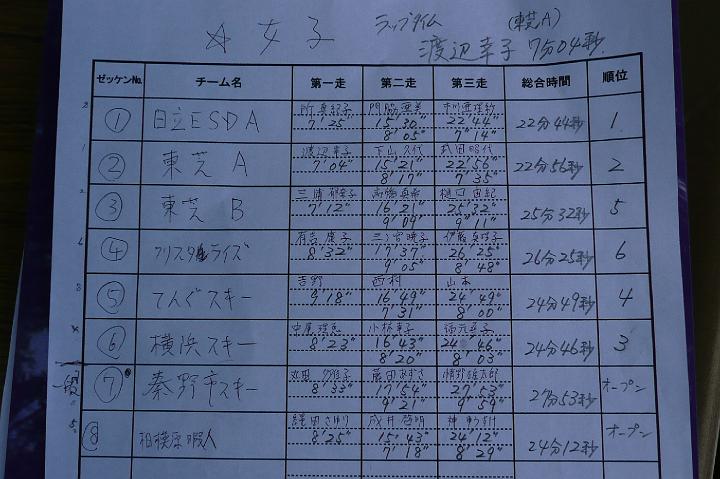 ☆ 女子 ラップタイム (東芝A)
渡辺幸子 7分04秒
ゼッケンNo. チーム名 第一走 第二走 第三走 総合時間 順位
① 日立ESDA 7'25" 15'30" 22'44" 22分44秒 1
8'05" 7'14"
② 東芝 A 渡辺幸子 下山久代 武田昭代 22分56秒 2
7'04" 15'21" 22'56"
8'17" 7'35"
③ 東芝 B 三浦 高橋真希 樋口由紀 25分32秒 5
7'12" 16'21" 25'32"
9'09" 9'11"
④ クリスタルライズ 有吉康子 三ツ宮暁子 26分25秒 6
8'32" 17'37" 26'25"
9'05" 8'48"
⑤ てんぐスキー 吉野 西村 山本 24分49秒 4
9'18" 16'49" 24'49"
7'31" 8'00"
⑥ 横浜スキー 小林幸子 24分46秒 3
8'23" 16'43" 24'46"
8'20" 8'03"
⑦ 秦野市スキー 藤田あずさ 27分53秒 オープン
8'33" 17'54" 27'53"
9'21" 9'59"
一般
⑧ 相模原暇人 24分12秒 オープン
8'25" 15'43" 24'12"
7'18" 8'29"